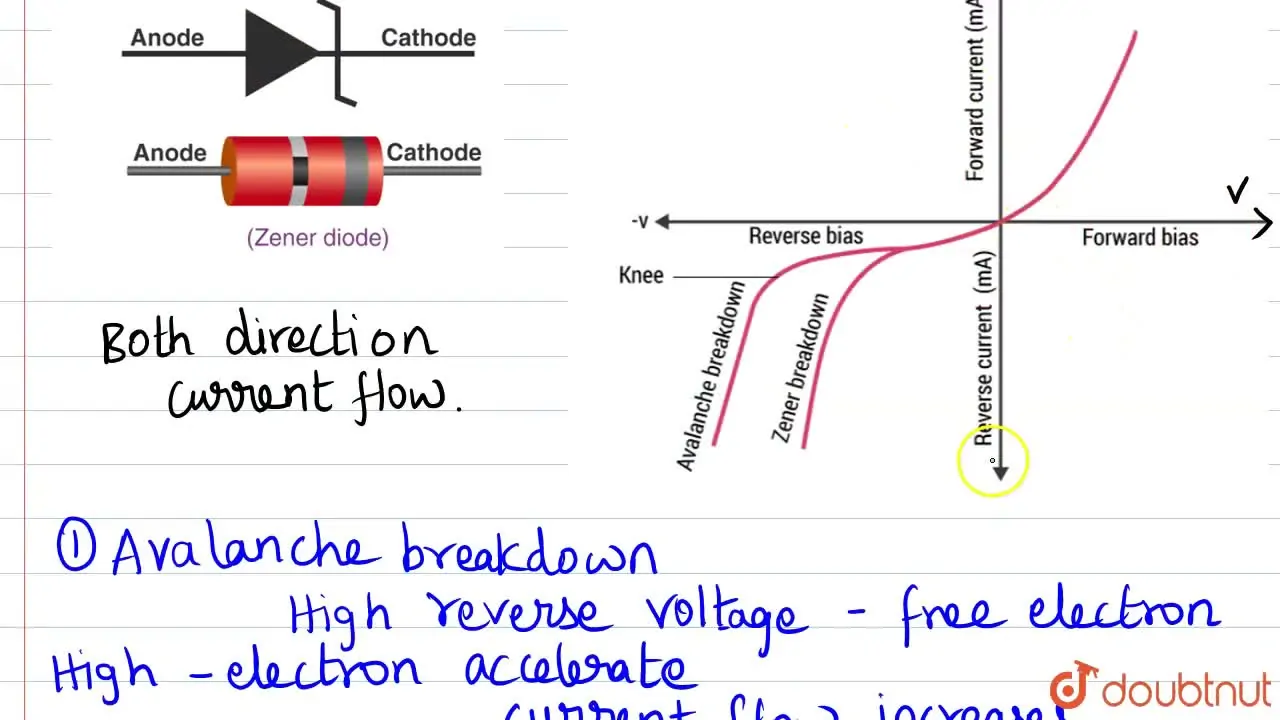 Anode Cathode
Anode Cathode
(Zener diode)
Both direction
current flow.
Forward current (mA
V
-v
Reverse bias
Forward bias
Knee
Avalanche breakdown
Zener breakdown
Reverse current (mA)
① Avalanche breakdown
High reverse voltage - free electron
High - electron accelerate
current flow increases
doubtnut